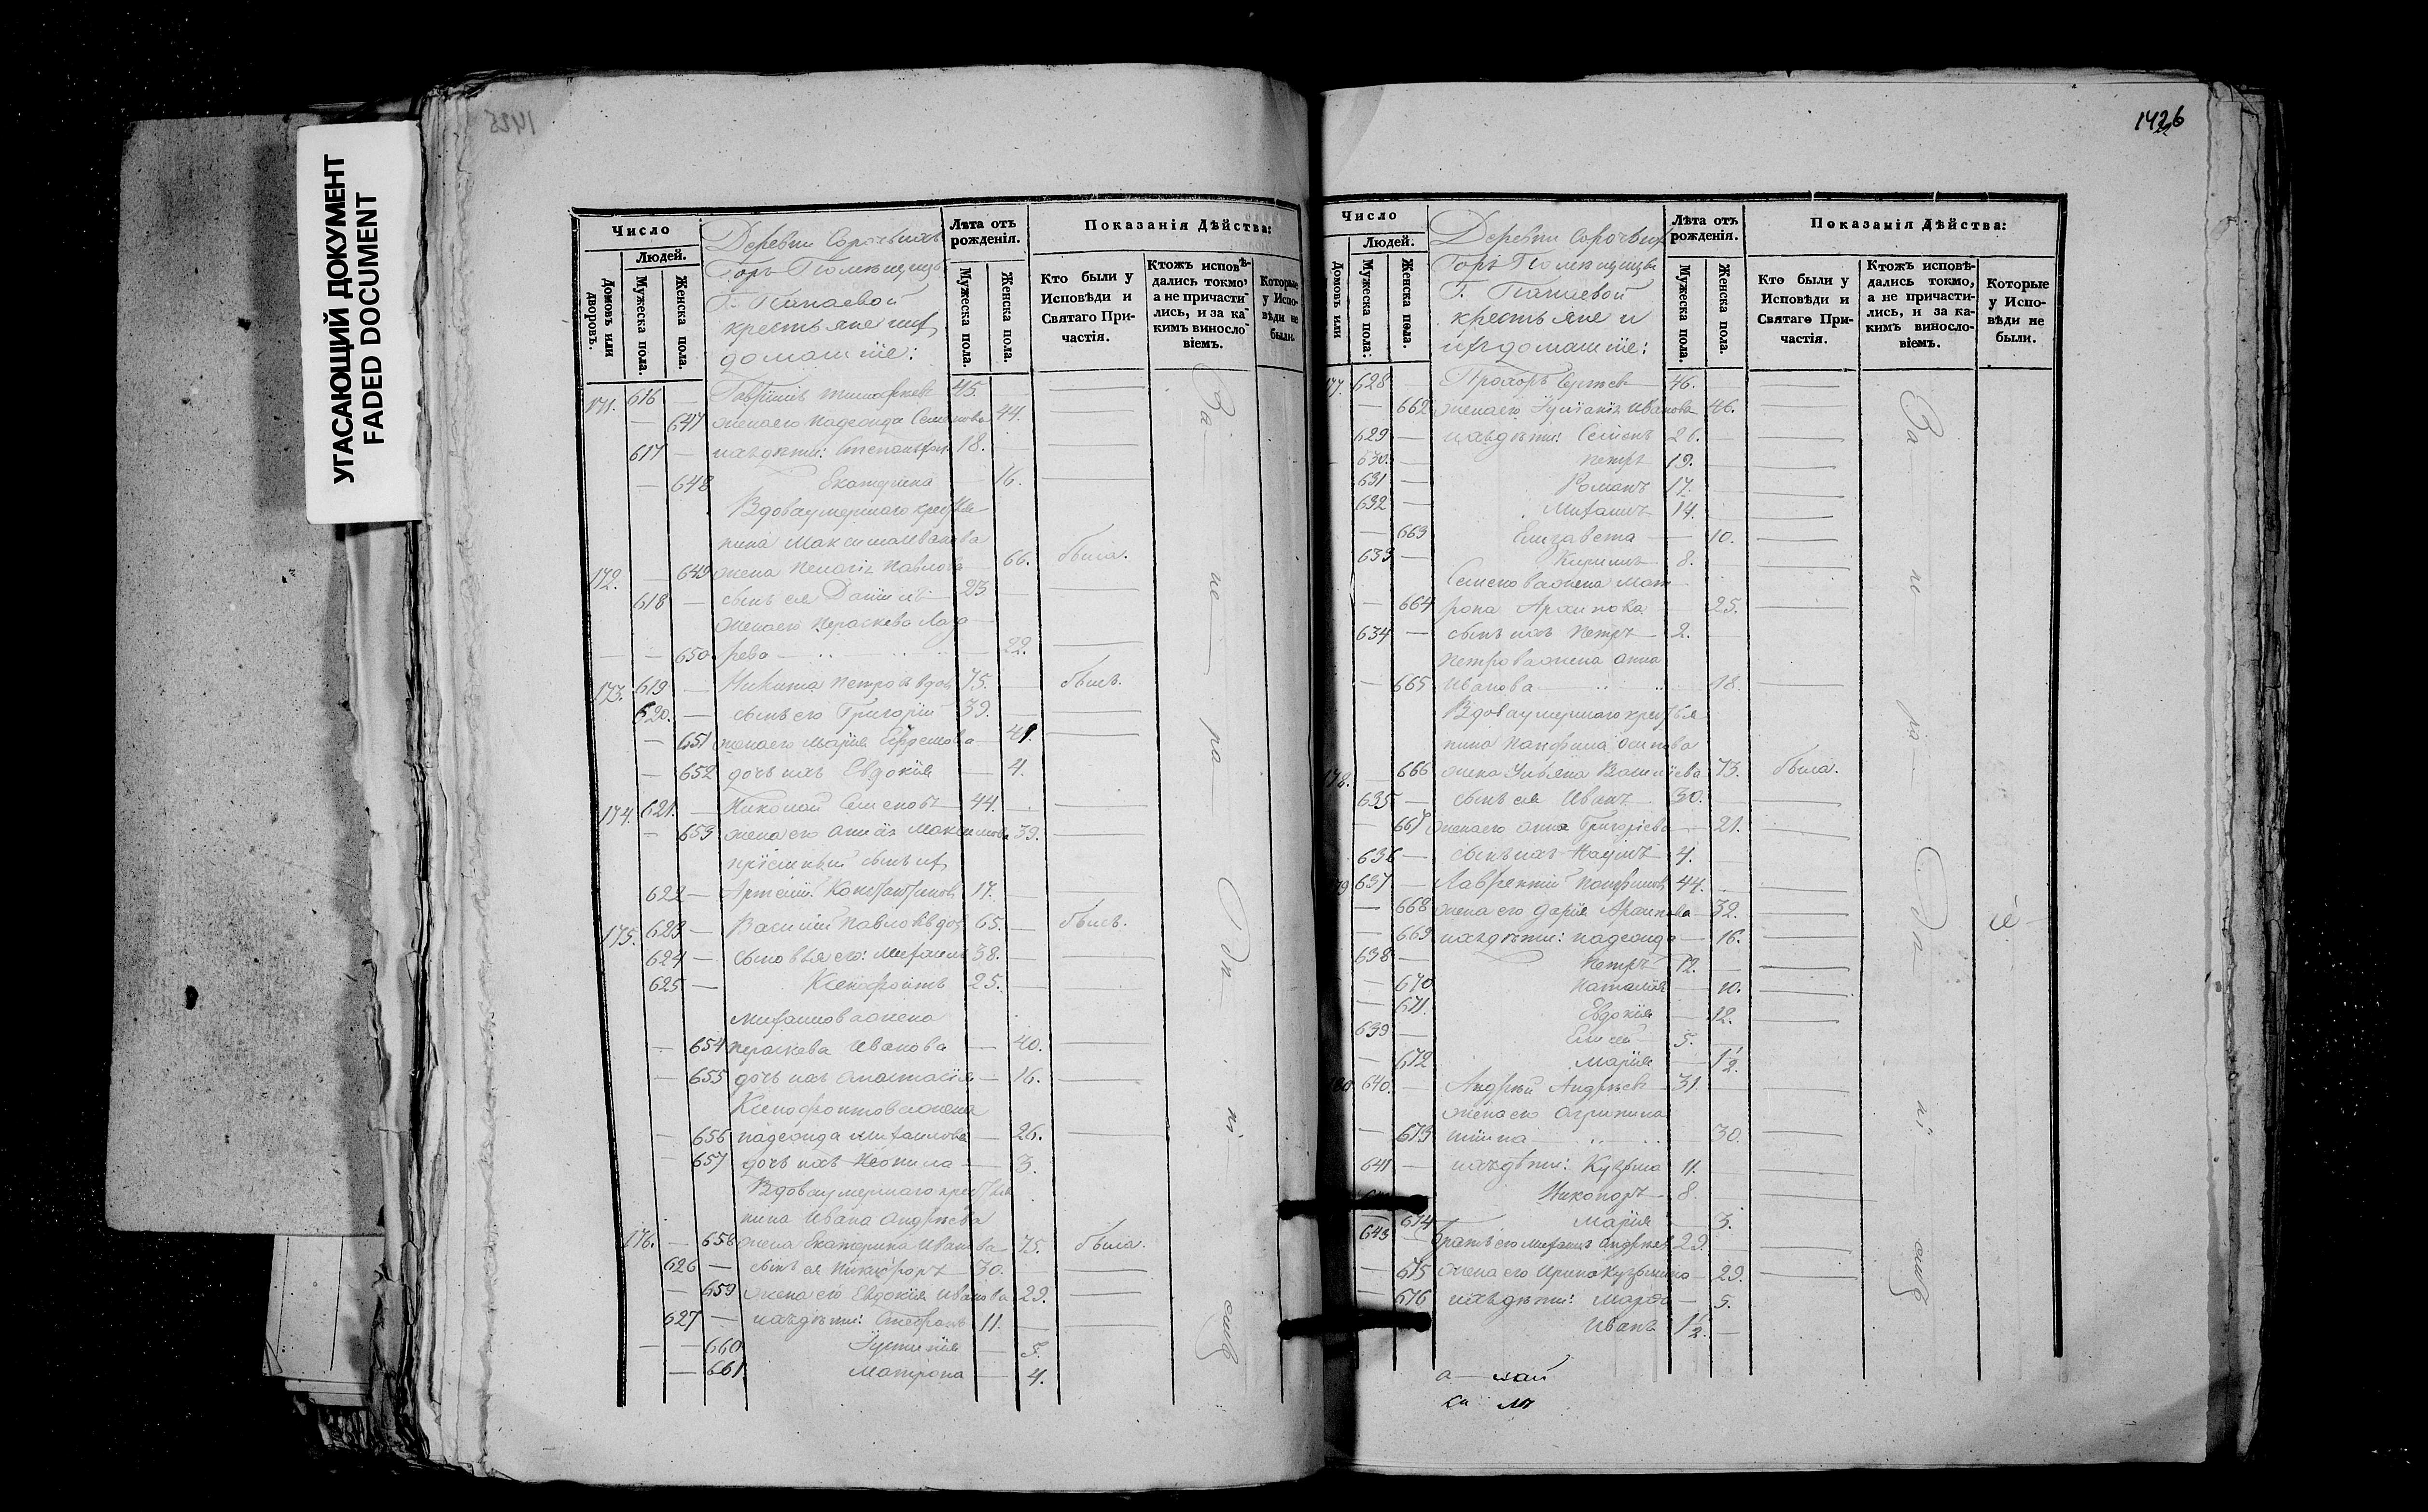 УГАСАЮЩИЙ ДОКУМЕНТ
FADED DOCUMENT
1425
Число
Людей.
Домовъ или дворовъ.
Мужеска пола.
Женска пола.
Деревни Сорочьихъ
Горъ Помѣщицы
Г.
крестьяне ихъ
домашніе:
Лѣта отъ рожденія.
Мужеска пола.
Женска пола.
Показанія Дѣйства:
Кто были у Исповѣди и Святаго При-частія.
Ктожъ исповѣ-дались токмо, а не причасти-лись, и за ка-кимъ винсло-віемъ.
Которые у Испо-вѣди не были.
171. 616 — Гавріилъ Тимофѣевъ 45. —
— 647 жена его Надежда Семенова 44.
617 — ихъ дѣти: Степанъ 18. —
— 648 Екатерина 16.
Вдова умершаго крестья-
нина Максима Иванова
172. — 649 жена Пелагія Павлова 66. была.
618 — сынъ ея Даніилъ 23 —
жена его Параскева Лаза-
— — 650 рева 22.
173. 619 — Никита Петровъ вдов 75. — былъ.
620. — сынъ его Григорій 39. —
— 651 жена его Марія Ефремова — 41.
— 652 дочь ихъ Евдокія — 4.
174. 621. — Николай Семеновъ 44. —
— 653 жена его Максимова 39.
пріемный сынъ ихъ
622 — Артемій Константиновъ 17. —
175. 623 — Василій Павловъ вдов 65. — былъ.
624 — сыновья его: Михаилъ 38. —
625 — Ксенофонтъ 25. —
Михаилова жена
— 654 Параскева Иванова — 40.
— 655 дочь ихъ Анастасія — 16.
Ксенофонтова жена
— 656 Надежда Михаилова — 26.
— 657 дочь ихъ Неонила — 3.
Вдова умершаго крестья-
нина Ивана Андрѣева
176. — 658 жена Екатерина Иванова 75. была.
626 — сынъ ея Никифоръ 30. —
— 659 жена его Евдокія Иванова 29.
627 — ихъ дѣти: Стефанъ 11. —
— — 660 Іустинія — 5.
— 661 Матрона — 4.
За — не — ра — дѣ — ні — емъ
1426
Число
Людей.
Домовъ или
Мужеска пола:
Женска пола.
Деревни Сорочьихъ
Горъ Помѣщицы
Г.
крестьяне и
ихъ домашніе:
Лѣта отъ рожденія.
Мужеска пола.
Женска пола.
Показанія Дѣйства:
Кто были у Исповѣди и Святаго При-частія.
Ктожъ исповѣ-дались токмо, а не причасти-лись, и за ка-кимъ винсло-віемъ.
Которые у Испо-вѣди не были.
177. 628 — Прохоръ Сергѣевъ 46. —
— 662 жена его Іуліанія Иванова 46.
629 — ихъ дѣти: Семенъ 26. —
630. — Петръ 19. —
631 — Романъ 17. —
632 — Михаилъ 14. —
— 663 Елизавета — 10.
633 — Кирилъ 8. —
Семенова жена Мат-
— 664 рона Архипова 25.
634 — сынъ ихъ Петръ 2.
Петрова жена Анна
— 665 Иванова 18.
Вдова умершаго крестья-
нина Панфила Осипова
178. — 666 жена Ульяна Васильева 73. была.
635 — сынъ ея Иванъ 30. —
— 667 жена его Анна Григорьева — 21.
636 — сынъ ихъ Наумъ 4. —
179 637 — Лаврентій Панфиловъ 44. —
— 668 жена его Дарія Архипова 32.
— 669 ихъ дѣти: Надежда — 16.
638 — Петръ 12. —
— 670 Наталія — 10.
— 671. Евдокія — 12.
639 — Елисей 5. —
— 672 Марія — 1½.
180 640. — Андрѣй Андрѣевъ 31. —
жена его Агрипина
— 673 30.
641 — ихъ дѣти: Кузьма 11. —
Никоноръ 8. —
— 674 Марія — 3.
643 — братъ его Михаилъ Андрѣевъ 29. —
— 675 жена его Ирина Кузьмина — 29.
— 676 ихъ дѣти: Марфа — 5.
Иванъ 1½. —
За — не — ра — дѣ — ні — емъ